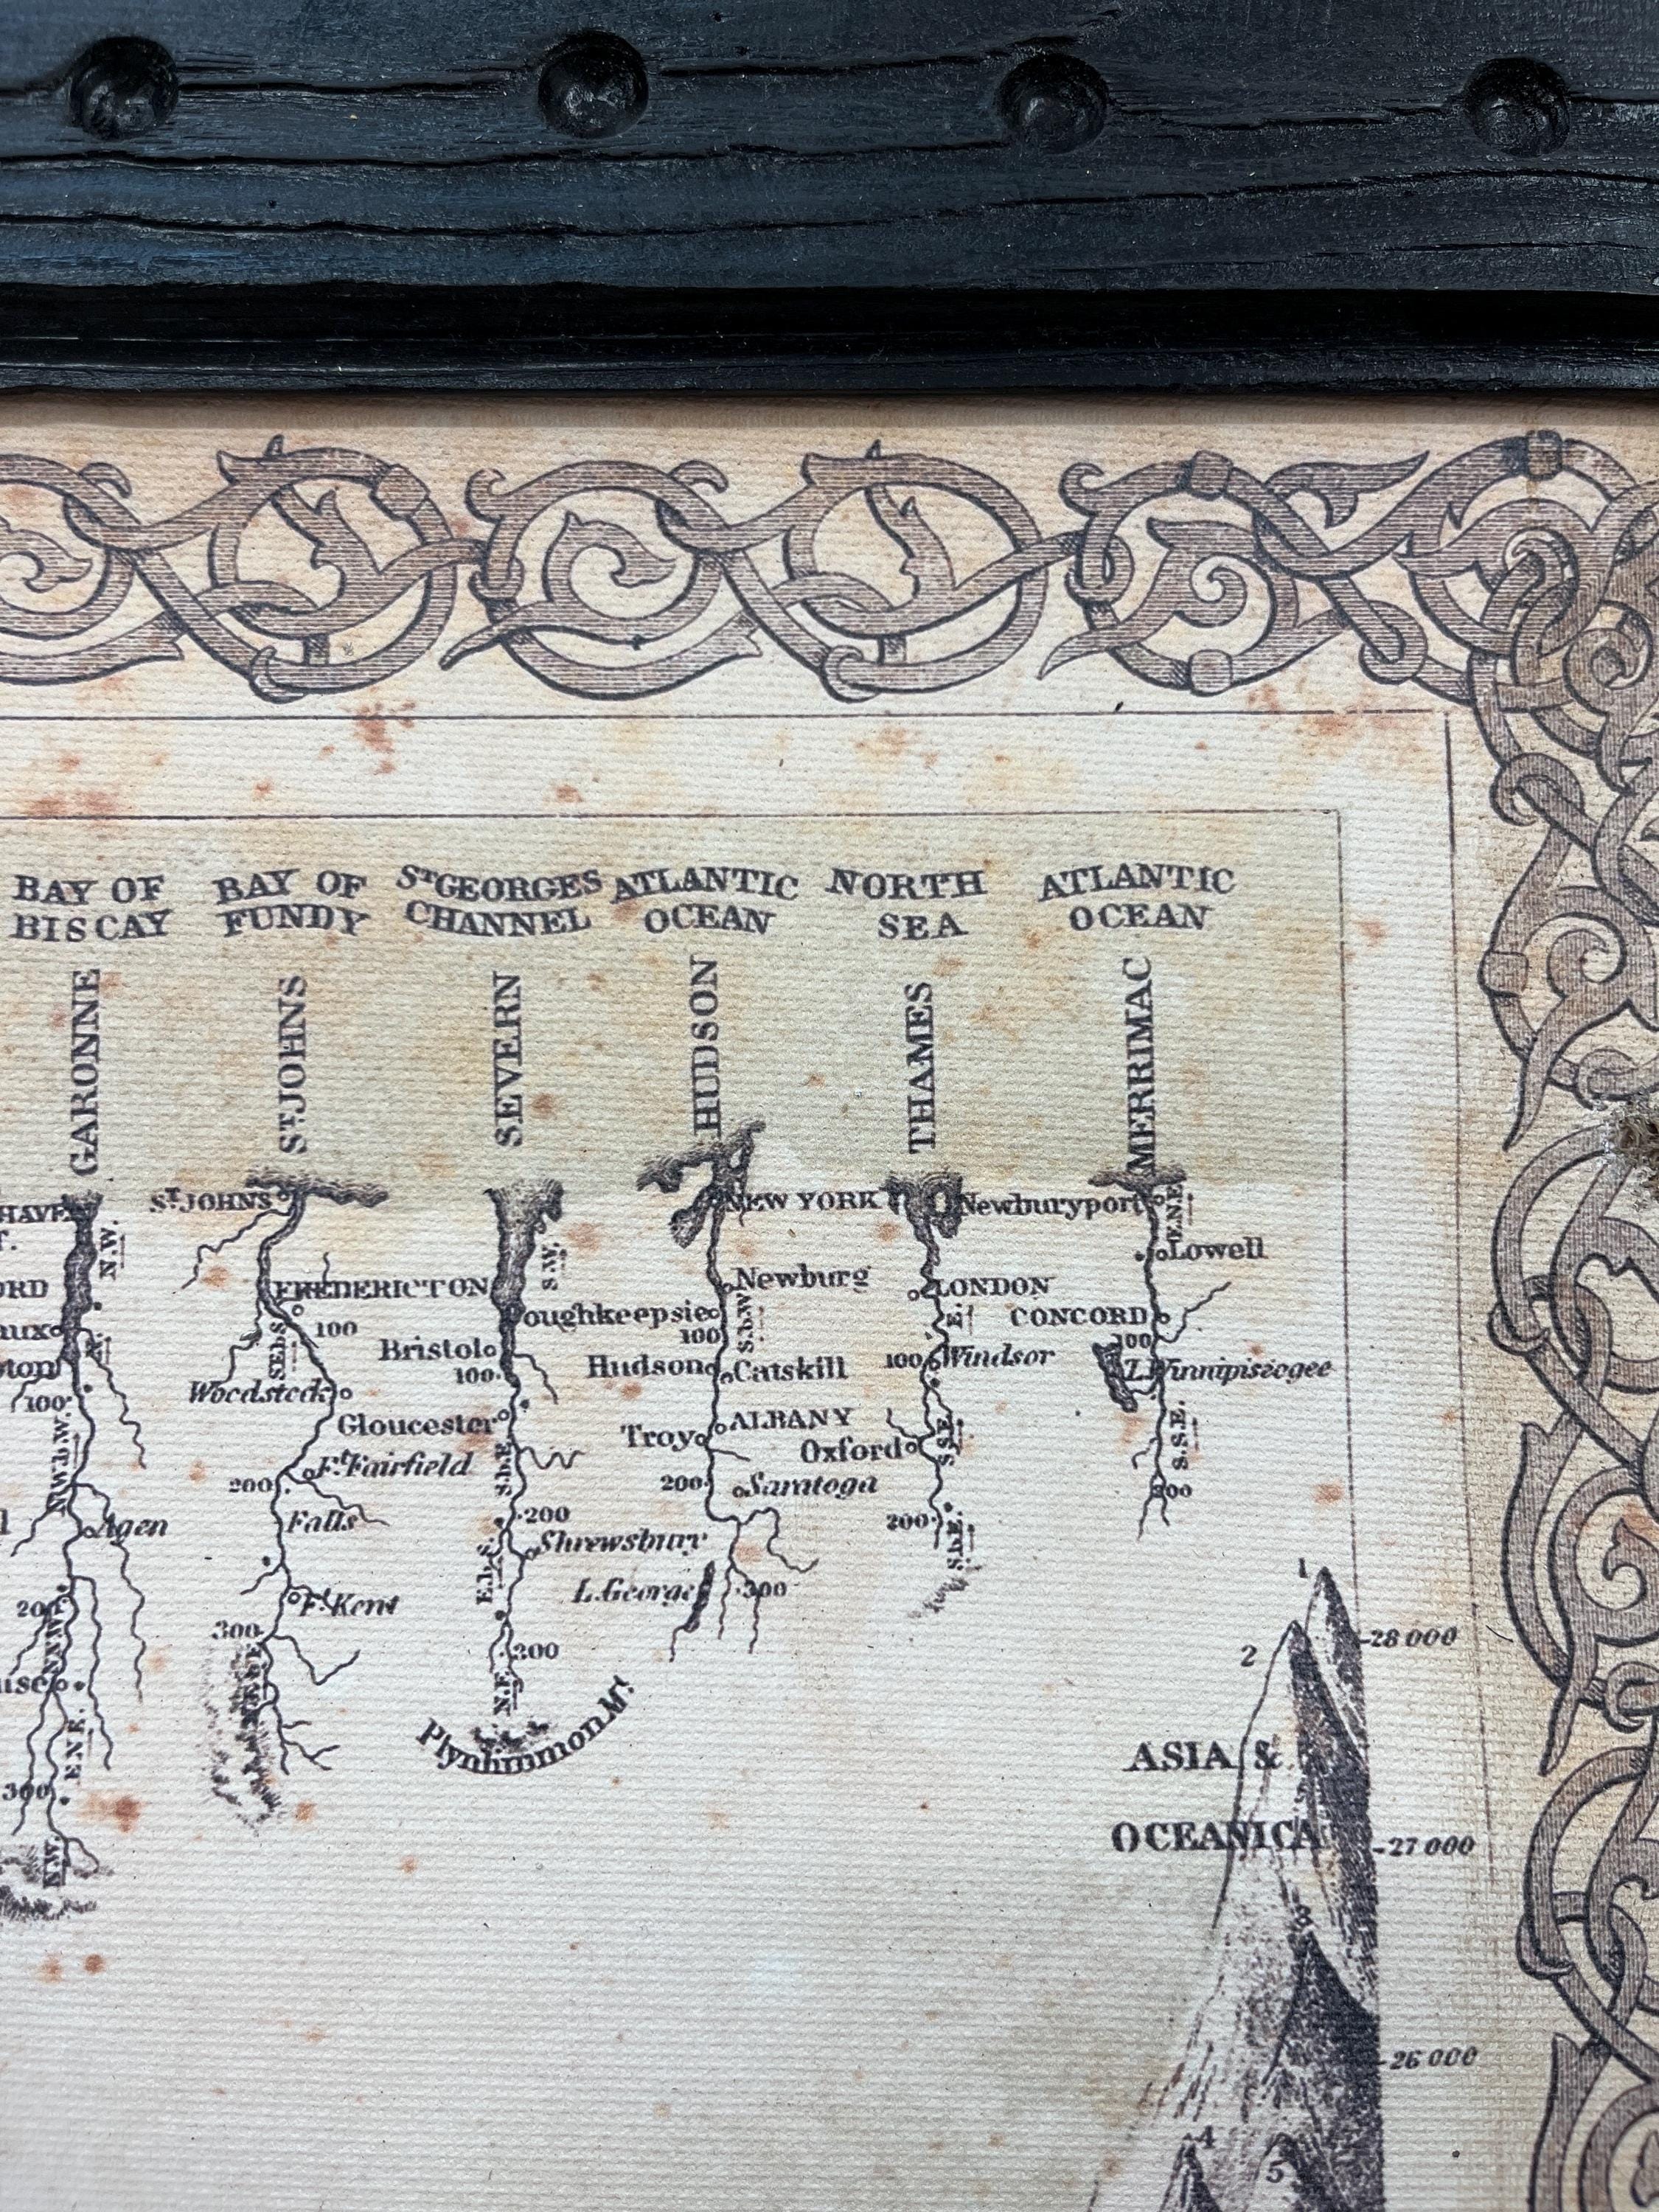 BAY OF
BISCAY
BAY OF
FUNDY
ST GEORGES
CHANNEL
ATLANTIC
OCEAN
NORTH
SEA
ATLANTIC
OCEAN
GARONNE
N.W.
100
N.W.b.W.
Agen
200
E N E.
300
N.W.
ST JOHNS
ST JOHNS
FREDERICTON
100
S.E.b.S.
Woodstock
Ft Fairfield
200
Falls
Ft Kent
300
SEVERN
S.W.
Bristol
100
Gloucester
S.b.E.
200
Shrewsbury
E.b.S.
300
N.E.
Plynhimmon Mt
HUDSON
NEW YORK
Newburg
Poughkeepsie
100
S.b.W.
Hudson
Catskill
ALBANY
Troy
200
Saratoga
L. George
300
THAMES
LONDON
E.
100
Windsor
Oxford
S.S.E.
200
S.b.E.
MERRIMAC
Newburyport
E.N.E.
Lowell
CONCORD
100
L. Winnipiseogee
S.S.E.
200
1
2
28 000
ASIA &
OCEANICA
27 000
3
26 000
4
5